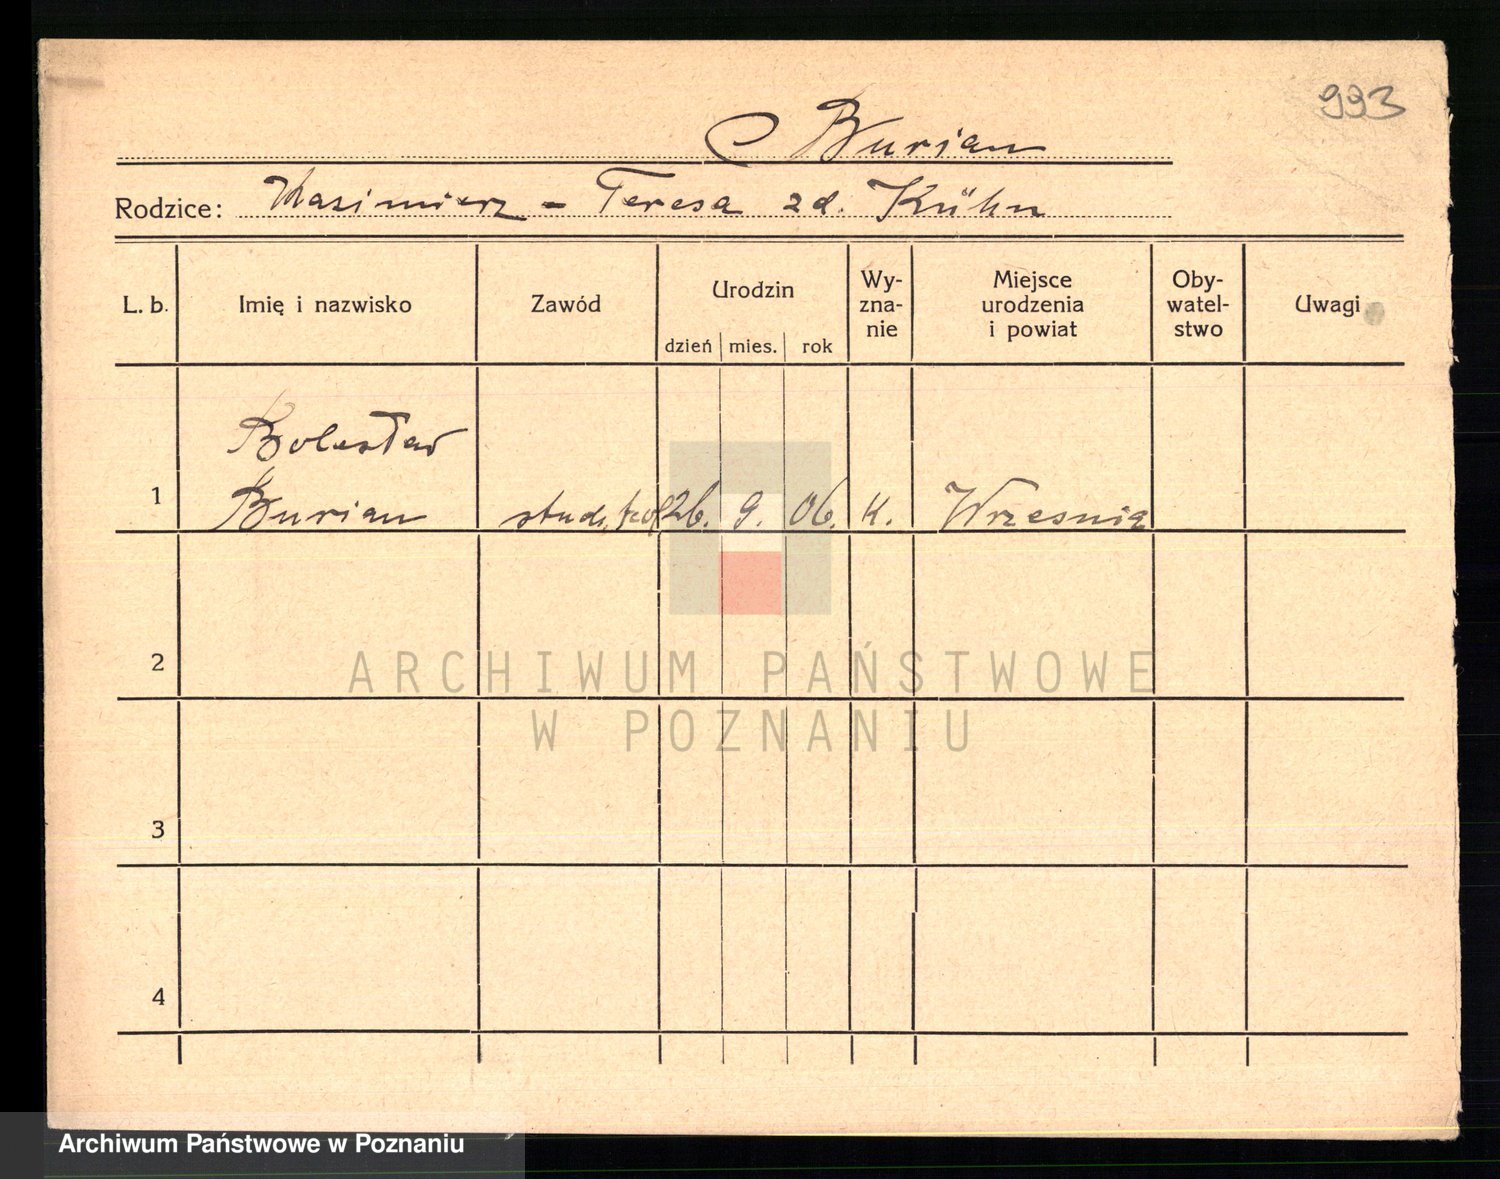 993
Burian
Rodzice: Kasimierz - Teresa zd. Kühn
L. b. Imię i nazwisko Zawód Urodzin dzień mies. rok Wy-zna-nie Miejsce urodzenia i powiat Oby-watel-stwo Uwagi
Bolesław
1 Burian stud. 26. 9. 06. K. Wrzesnia
2
3
4
ARCHIWUM PAŃSTWOWE
W POZNANIU
Archiwum Państwowe w Poznaniu